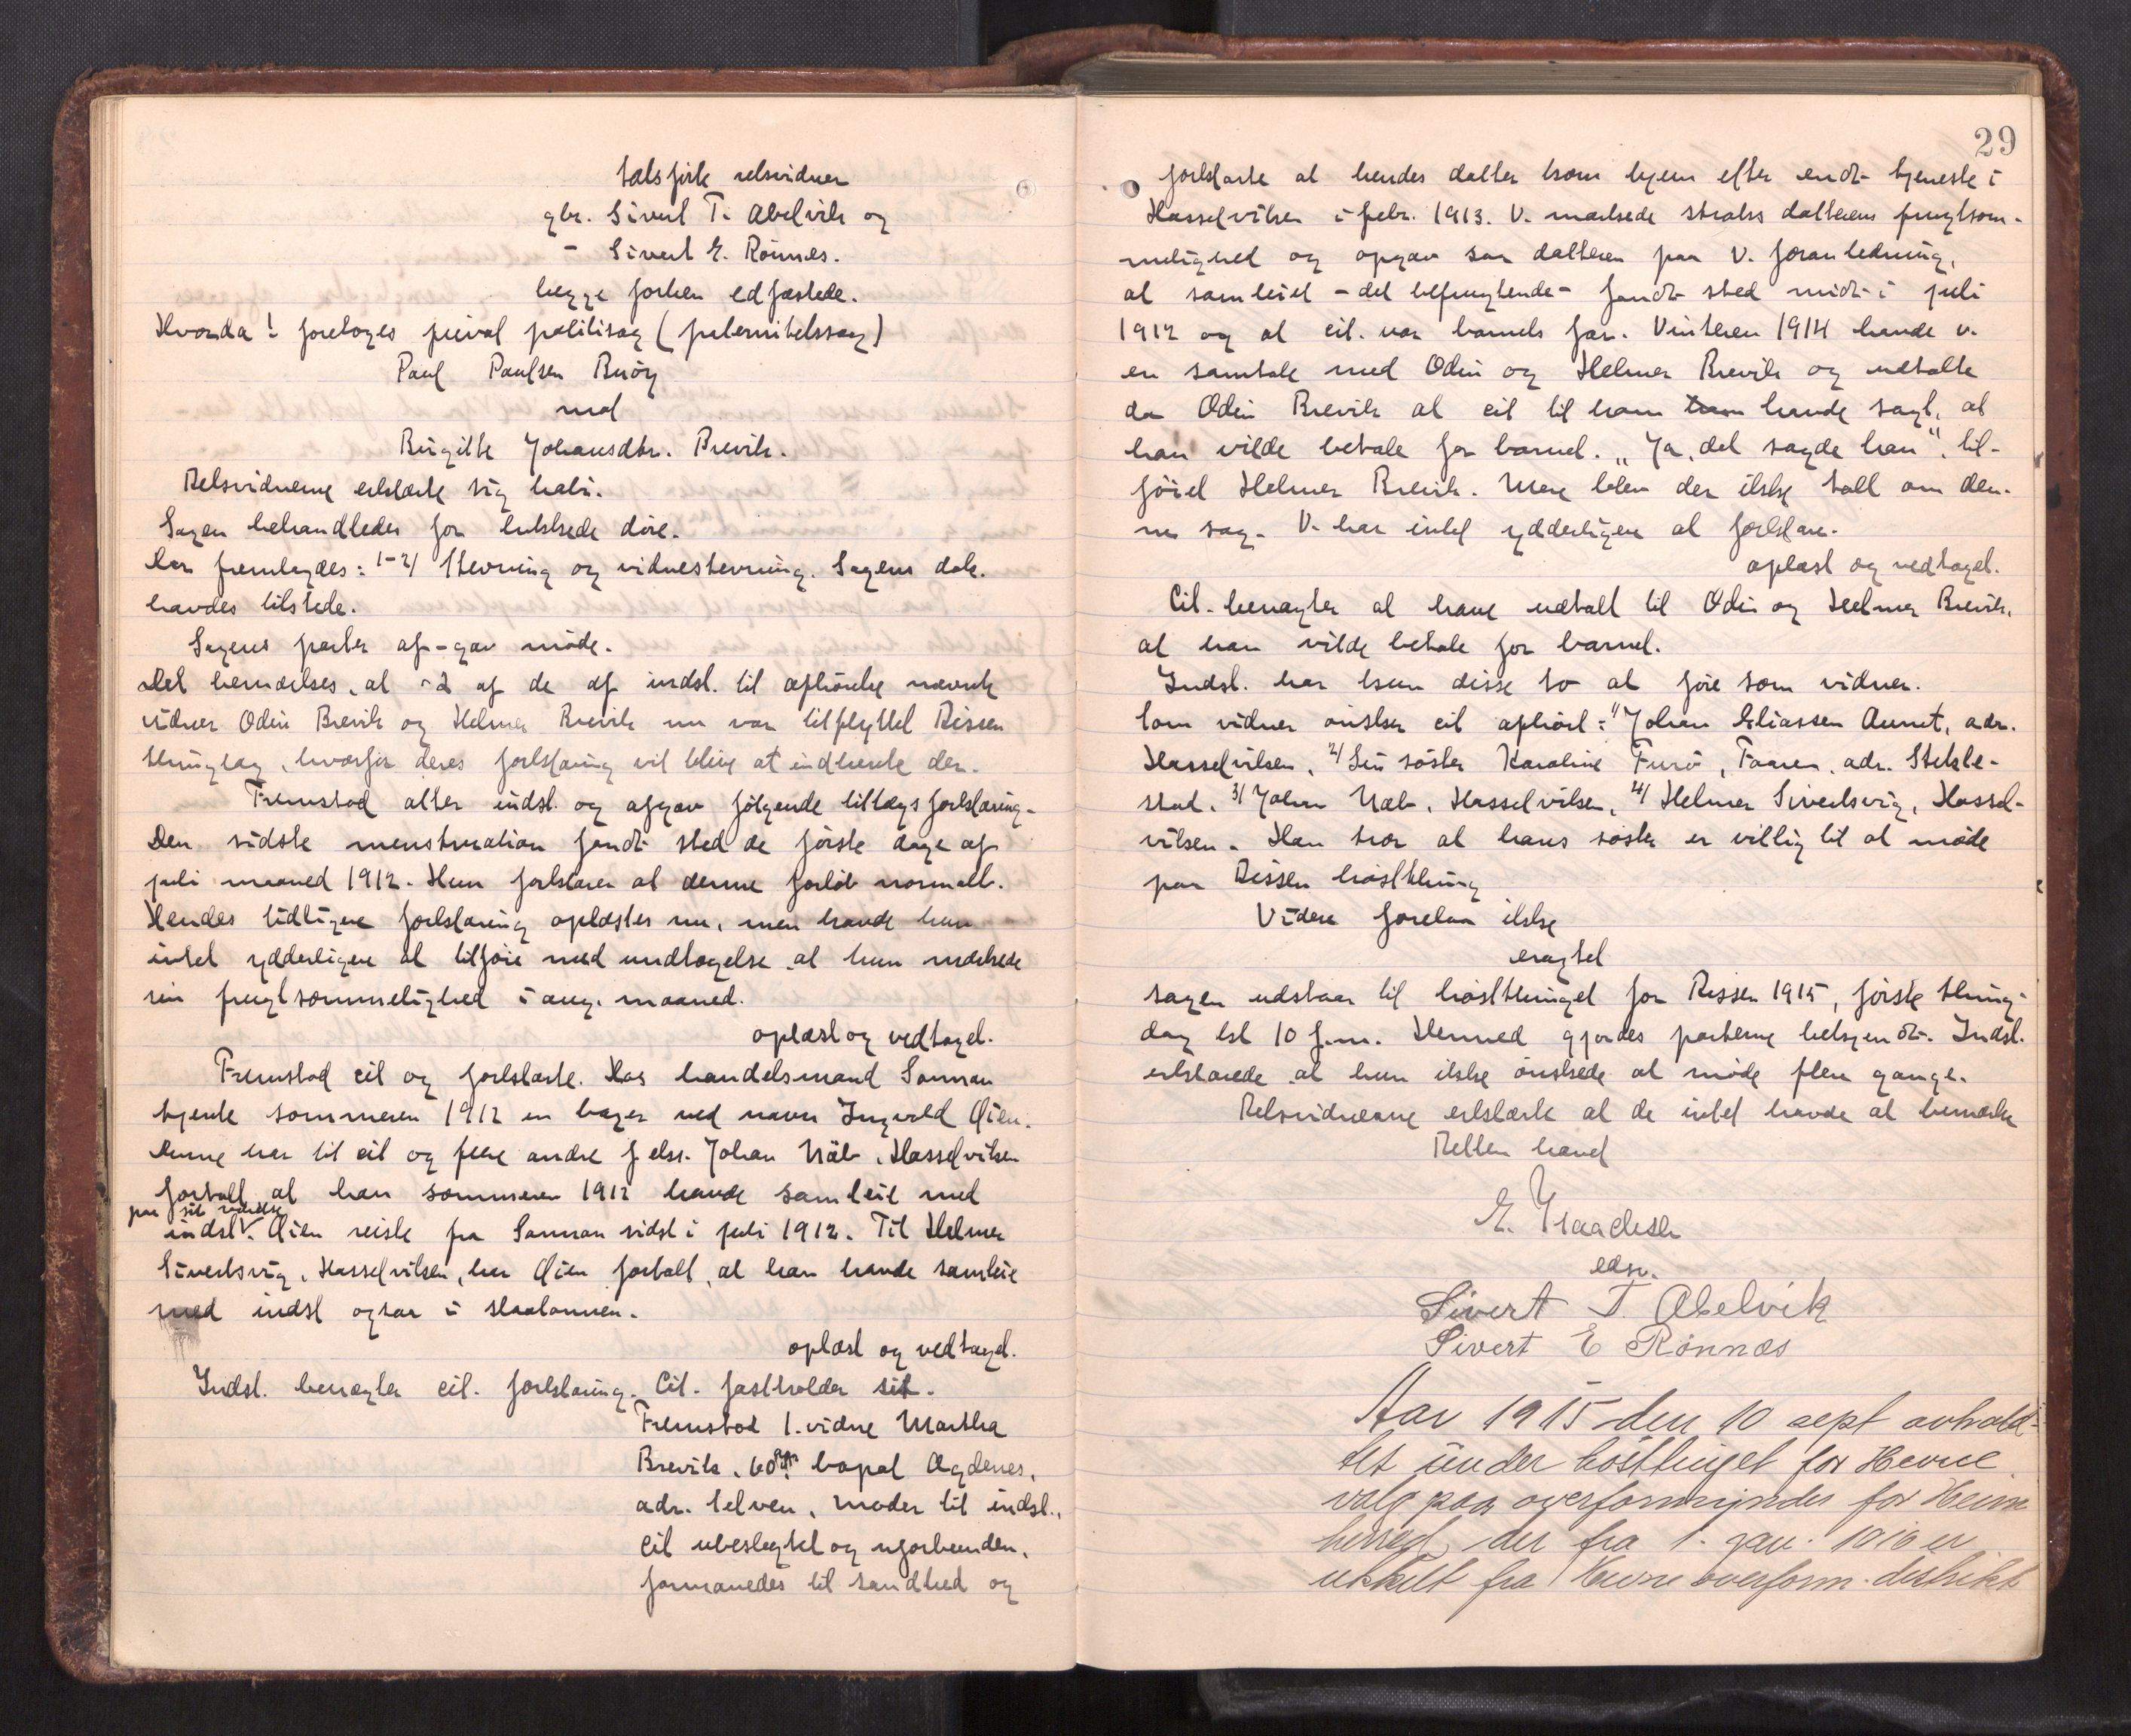 talsfirte retsvidner
gbr. Sivert T. Abelvik og
– Sivert E. Rönnes.
begge forhen edfæstede.
Hvorda! foretoges privat politisag (paternitetssag)
Paul Paulsen Buöy
mod
Birgitte Johansdtr. Brevik.
Retsvidnerne erklærte sig habi.
Sagen behandledes for lukkede döre.
Der fremlagdes: 1-2/ Stevning og vidnestevning. Sagens dok.
havdes tilstede.
Sagens parter af-gav möde.
Det bemærkes, at 2 af de af indst. til afhörelse nævnte
vidner Odin Brevik og Helmer Brevik nu var tilflyttet Rissen
thinglag, hvorfor deres forklaring vil blive at indhente der.
Fremstod atter indst. og afgav fölgende tillægsforklaring.
Den sidste menstruation fandt sted de förste dage af
juli maaned 1912. Hun forklarer at denne forlöb normalt.
Hendes tidligere forklaring oplæstes nu, men havde hun
intet yderligere at tilföie med undtagelse at hun mærkede
sin frugtsommelighed i aug. maaned.
oplæst og vedtaget.
Fremstod cit og forklarte. Hos handelsmand Sannan
tjente sommeren 1912 en bager ved navn Ingvald Öien.
Denne har til cit og flere andre f. eks. Johan Næb, Hasselviken
fortalt at han sommeren 1912 havde samleie med
paa sit værelse
indst. Öien reiste fra Sannan sidst i juli 1912. Til Helmer
Sivertsvig, Hasselviken, har Öien fortalt, at han havde samleie
med indst ogsaa i slaatonnen.
oplæst og vedtaget.
Indst. benægter cit. forklaring. Cit. fastholder sit.
Fremstod 1. vidne Martha
Brevik, 60 bopæl Agdenes,
adr. Selven, moder til indst.,
cit ubeslegtet og uforbunden,
formanedes til sandhed og
29
forklarte at hendes datter kom hjem efter endt tjeneste i
Hasselviken i febr. 1913. V. mærkede straks datterens frugtsom-
melighed og opgav saa datteren paa V. foranledning,
at samleiet – det befrugtende – fandt sted midt i juli
1912 og at cit. var barnets far. Vinteren 1914 havde v.
en samtale med Odin og Helmer Brevik og udtalte
da Odin Brevik at cit til ham ham havde sagt, at
han vilde betale for barnet. „Ja, det sagde han“, til-
föiet Helmer Brevik. Mere blev der ikke talt om den-
ne sag. V. har intet yderligere at forklare.
oplæst og vedtaget.
Cit. benægter at have udtalt til Odin og Helmer Brevik,
at han vilde betale for barnet.
Indst. har kun disse to at före som vidner.
Som vidner önsker cit afhört: 1/ Johan Eliassen Aunet, adr.
Hasselviken, 2/ Sin söster Karoline Furö, Taaren, adr. Stokke-
stad, 3/ Johan Næb, Hasselviken, 4/ Helmer Sivertsvig, Hassel-
viken. Han tror at hans söster er villig til at möde
paa Rissen höstthing
Videre forelaa ikke
eragtet
sagen udstaar til höstthinget for Rissen 1915, förste thing-
dag kl 10 f.m. Hermed gjordes parterne bekjendt. Indst.
erklærede at hun ikke önskede at möde flere gange.
Retsvidnerne erklærte at de intet havde at bemærke
Retten hævet
edsv.
Sivert T. Abelvik
Sivert E Rönnes
Aar 1915 den 10 sept avhold-
tes under hösttinget for Hevne
valg paa overformynder for Heim
herred, der fra 1. jan. 1916 er
utskilt fra Hevne overform. distrikt